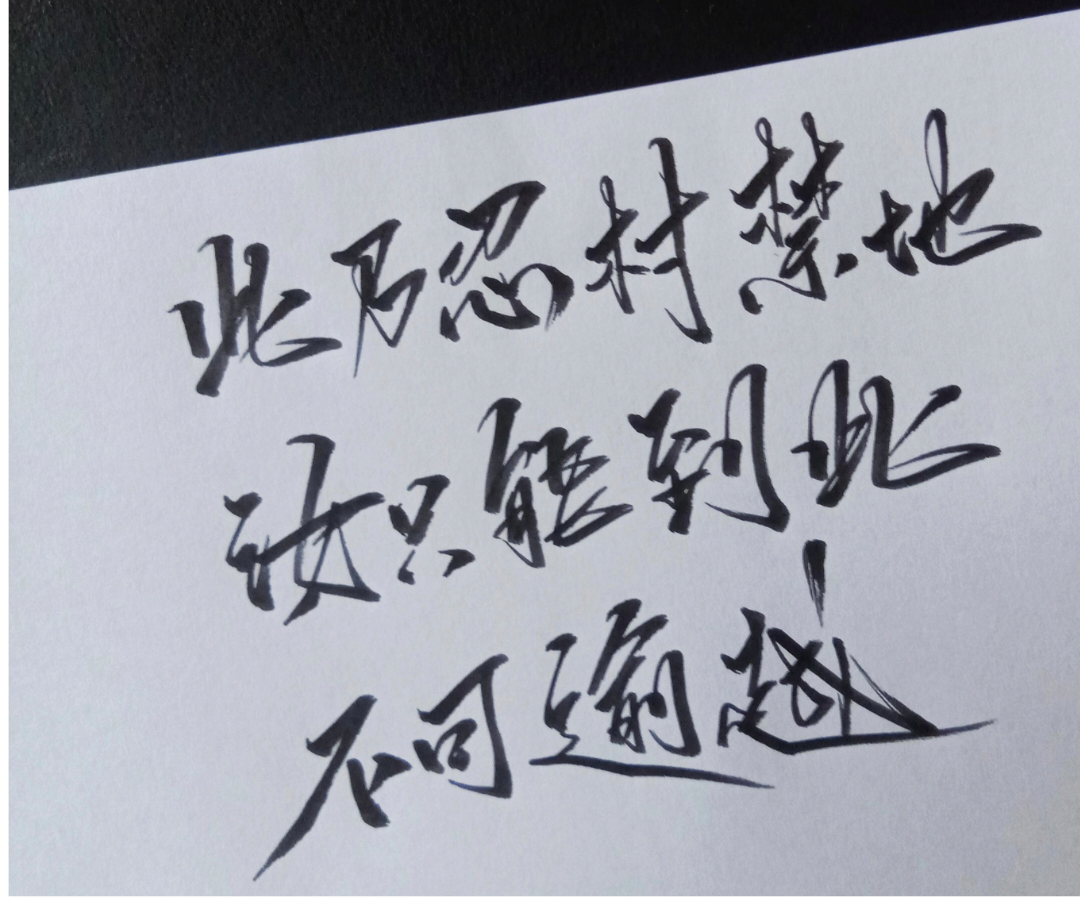 此乃忍村禁地
汝只能到此
不可逾越